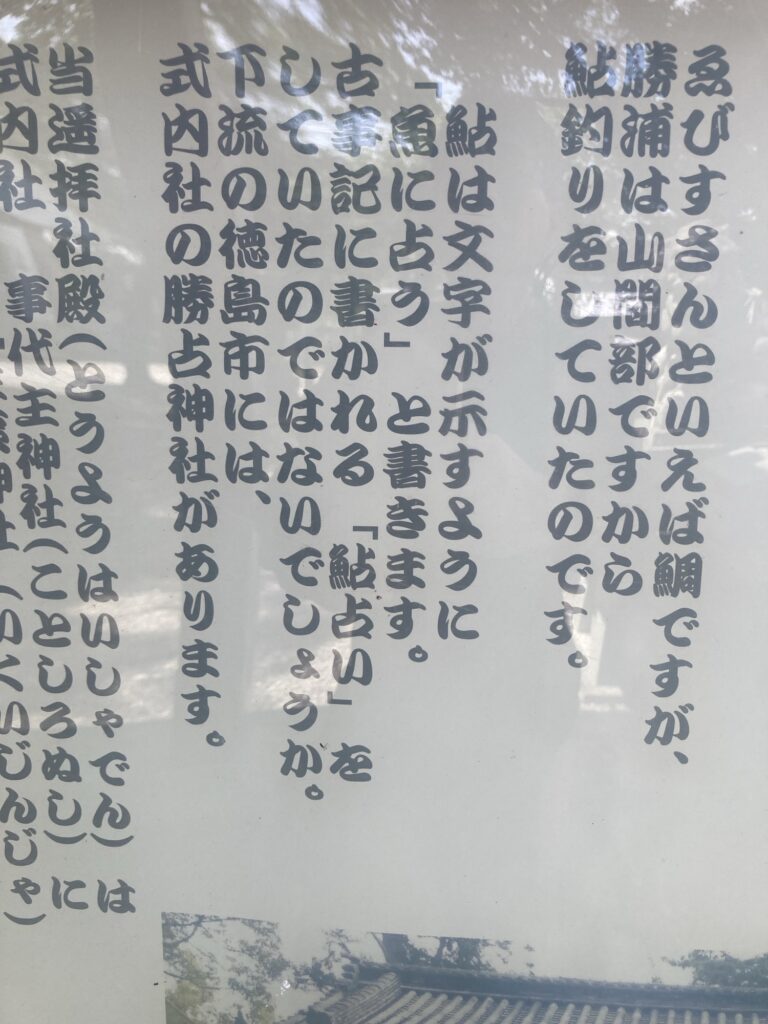 ゑびすさんといえば鯛ですが、
勝浦は山間部ですから
鮎釣りをしていたのです。
鮎は文字が示すように
「魚に占う」と書きます。
古事記に書かれる「鮎占い」を
していたのではないでしょうか。
下流の徳島市には、
式内社の勝占神社があります。
当遥拝社殿(とうようはいしゃでん)は
事代主神社(ことしろぬし)に
式内社